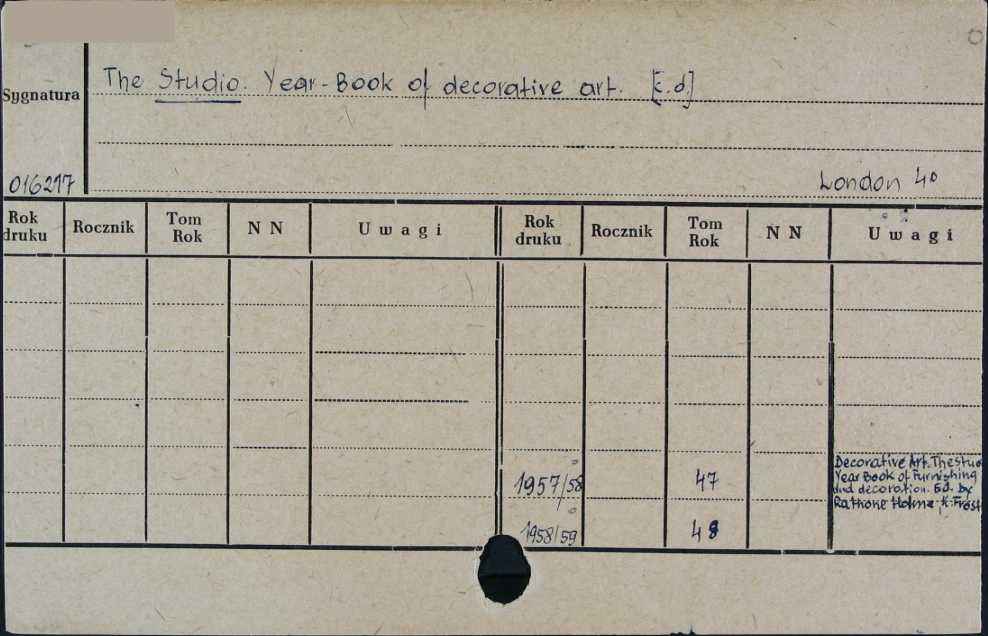 The Studio. Year-Book of decorative art. [c.d.]
Sygnatura
016217
London 4°
Rok druku Rocznik Tom Rok N N Uwagi Rok druku Rocznik Tom Rok N N Uwagi
1957/58 47 Decorative Art. The Stud
Year Book of Furnishing
and decoration. Ed. by
Rathone Holme, K. Frost
1958/59 48